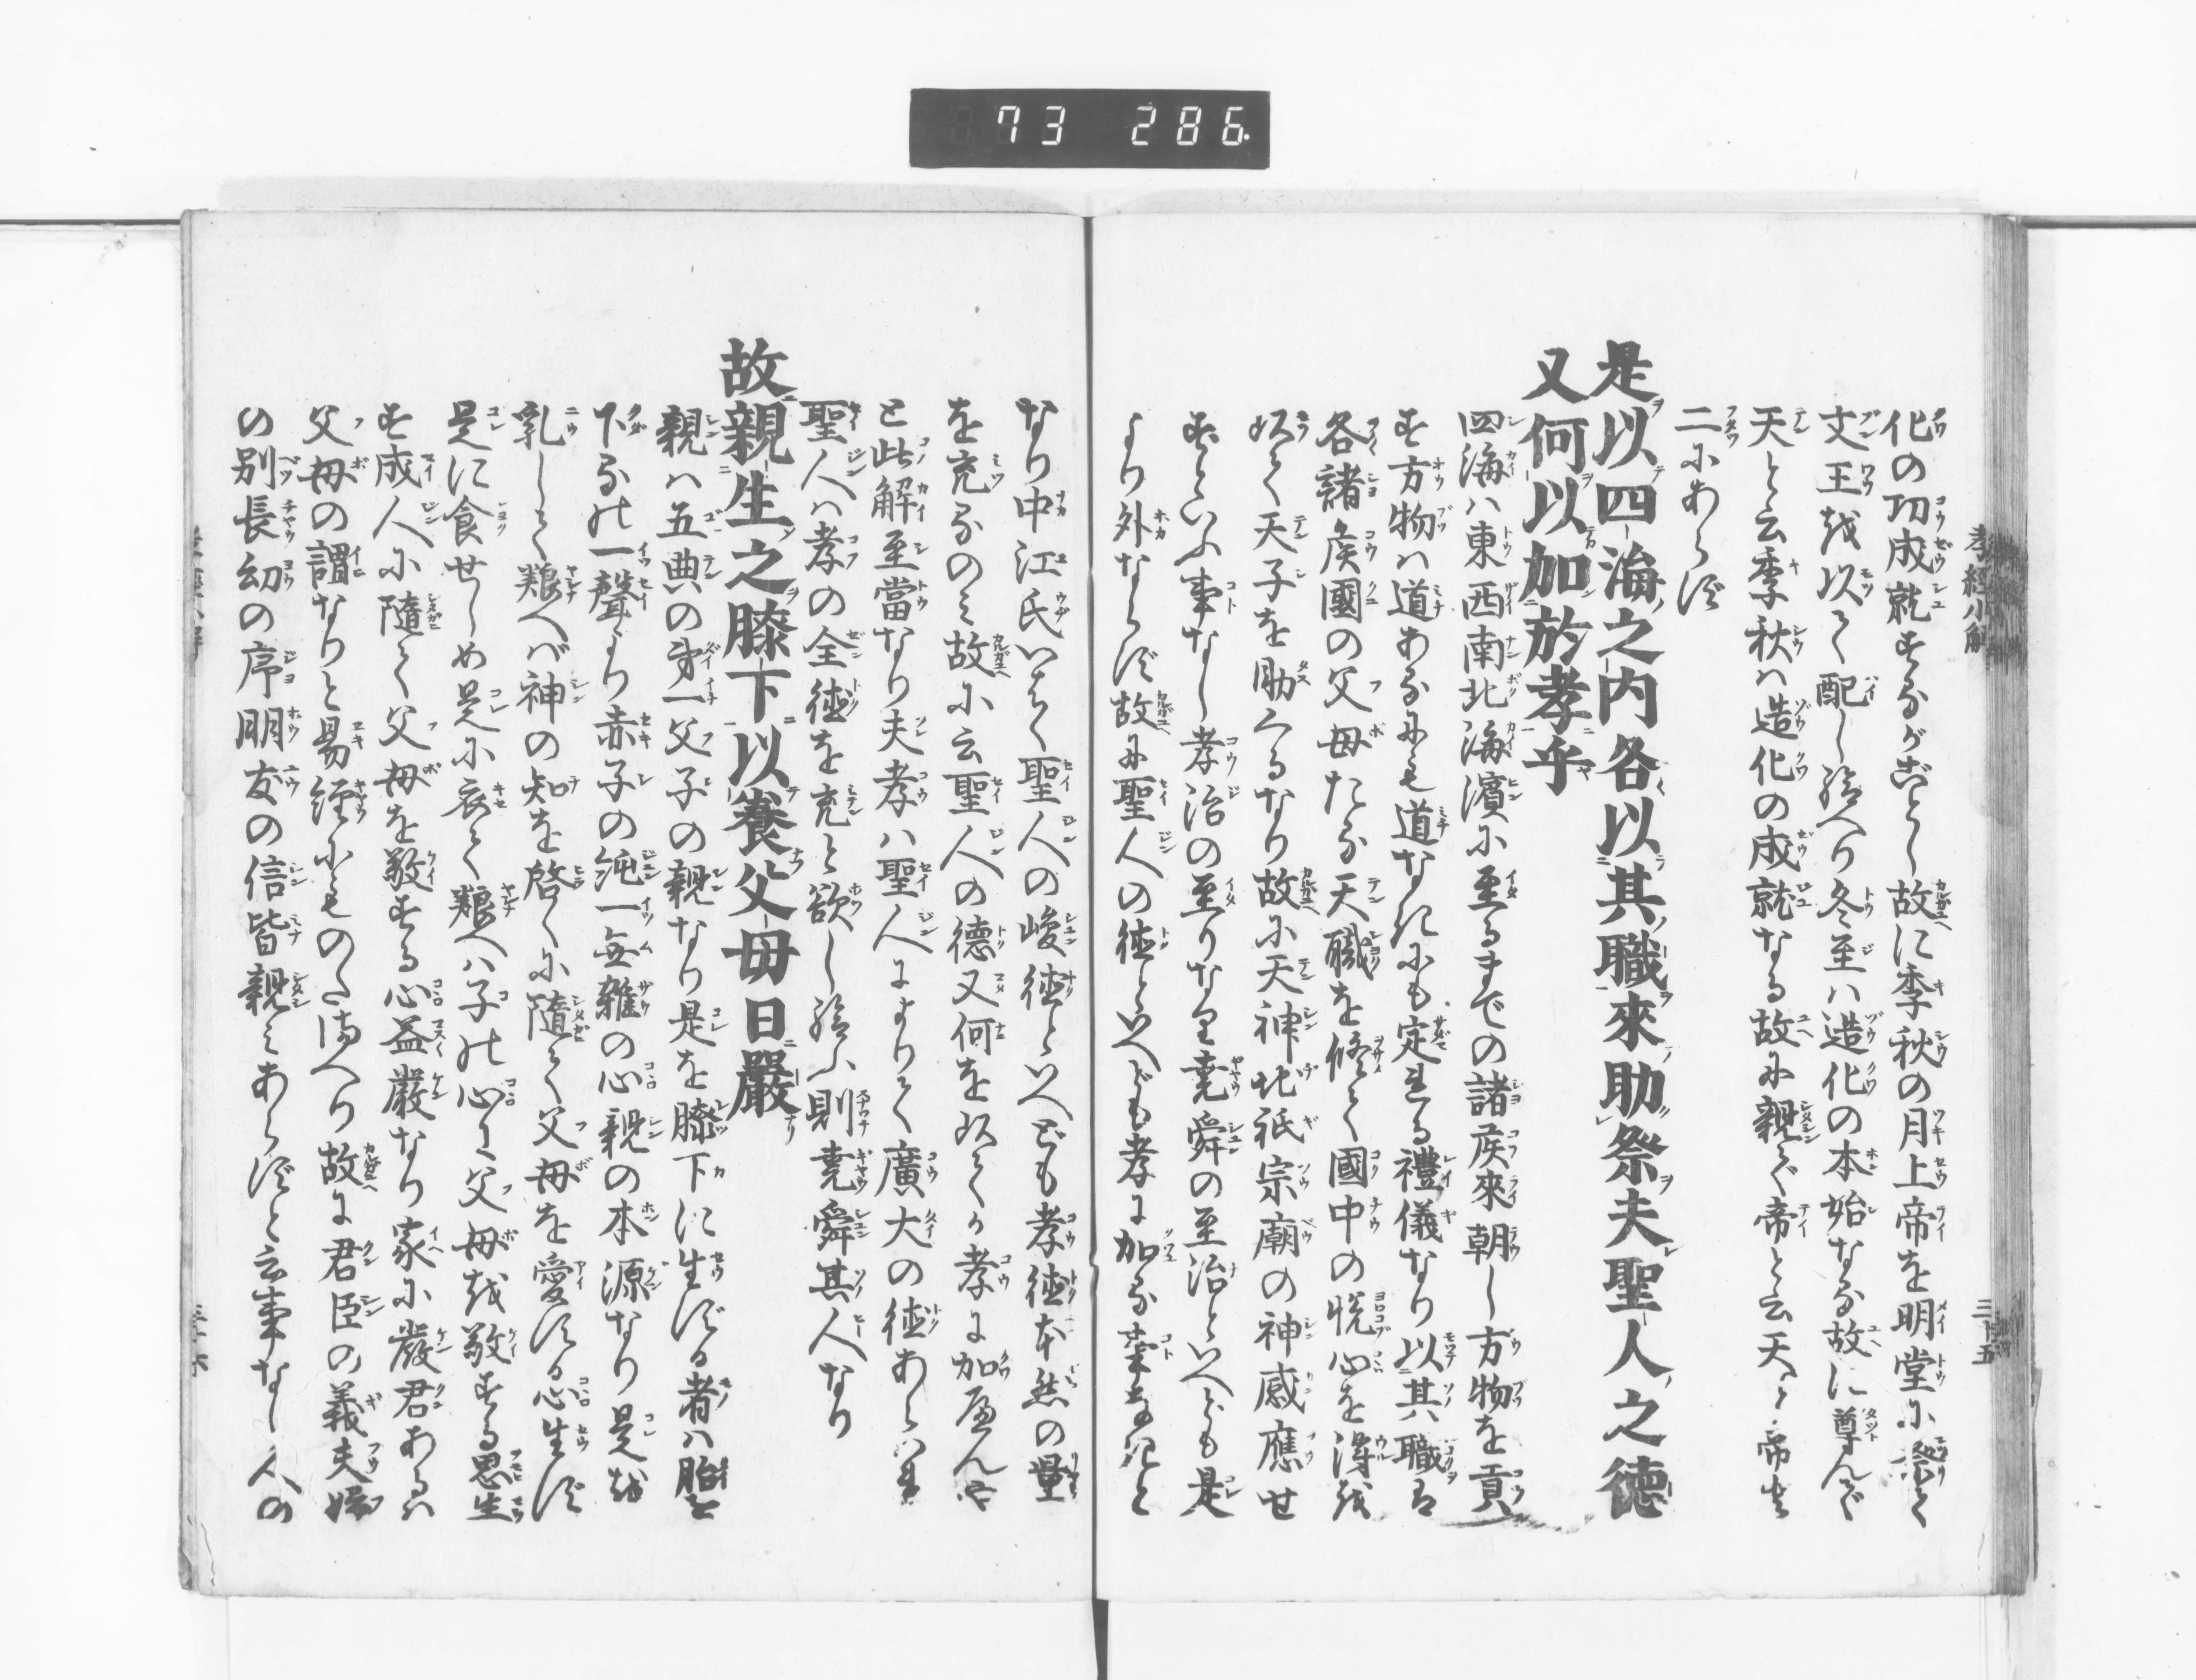 73 286
孝經小解
三十五
化の功成就するがごとし故に季秋の月上帝を明堂に祭て
文王を以て配し給へり冬至は造化の本始なる故に尊んで
天と云季秋は造化の成就なる故に親んで帝と云天と帝と
二にあらず
是以四海之内各以其職來助祭夫聖人之德
又何以加於孝乎
四海は東西南北海濱に至るまでの諸侯來朝し方物を貢
す方物は道あるにも道なきにも定まる禮儀なり以其職は
各諸侯國の父母たる天職を修て國中の悦心を得を
以て天子を助くるなり故に天神地祇宗廟の神感應せ
ずといふ事なし孝治の至りなり堯舜の至治といへども是
より外ならず故に聖人の徳といへども孝に加る事なきと
なり中江氏いはく聖人の峻徳といへども孝徳本然の量
を充るのみ故に云聖人の德又何を以てか孝に加へんや
と此解至當なり夫孝は聖人によりて廣大の徳あらはる
聖人は孝の全徳を充と欲し給ふ則堯舜其人なり
故親生之膝下以養父母日嚴
親は五典の第一父子の親なり是を膝下に生ずる者は胎を
下るの一聲より赤子の純一無雜の心親の本源なり是を
乳して養へば神の知を啓くに隨て父母を愛する心生ず
是に食せしめ是に衣て養へば子の心に父母を敬する思生
ず成人に隨て父母を敬する心益嚴なり家に嚴君あるは
父母の謂なりと易經にものたまへり故に君臣の義夫婦
の別長幼の序朋友の信皆親にあらずと云事なし人の